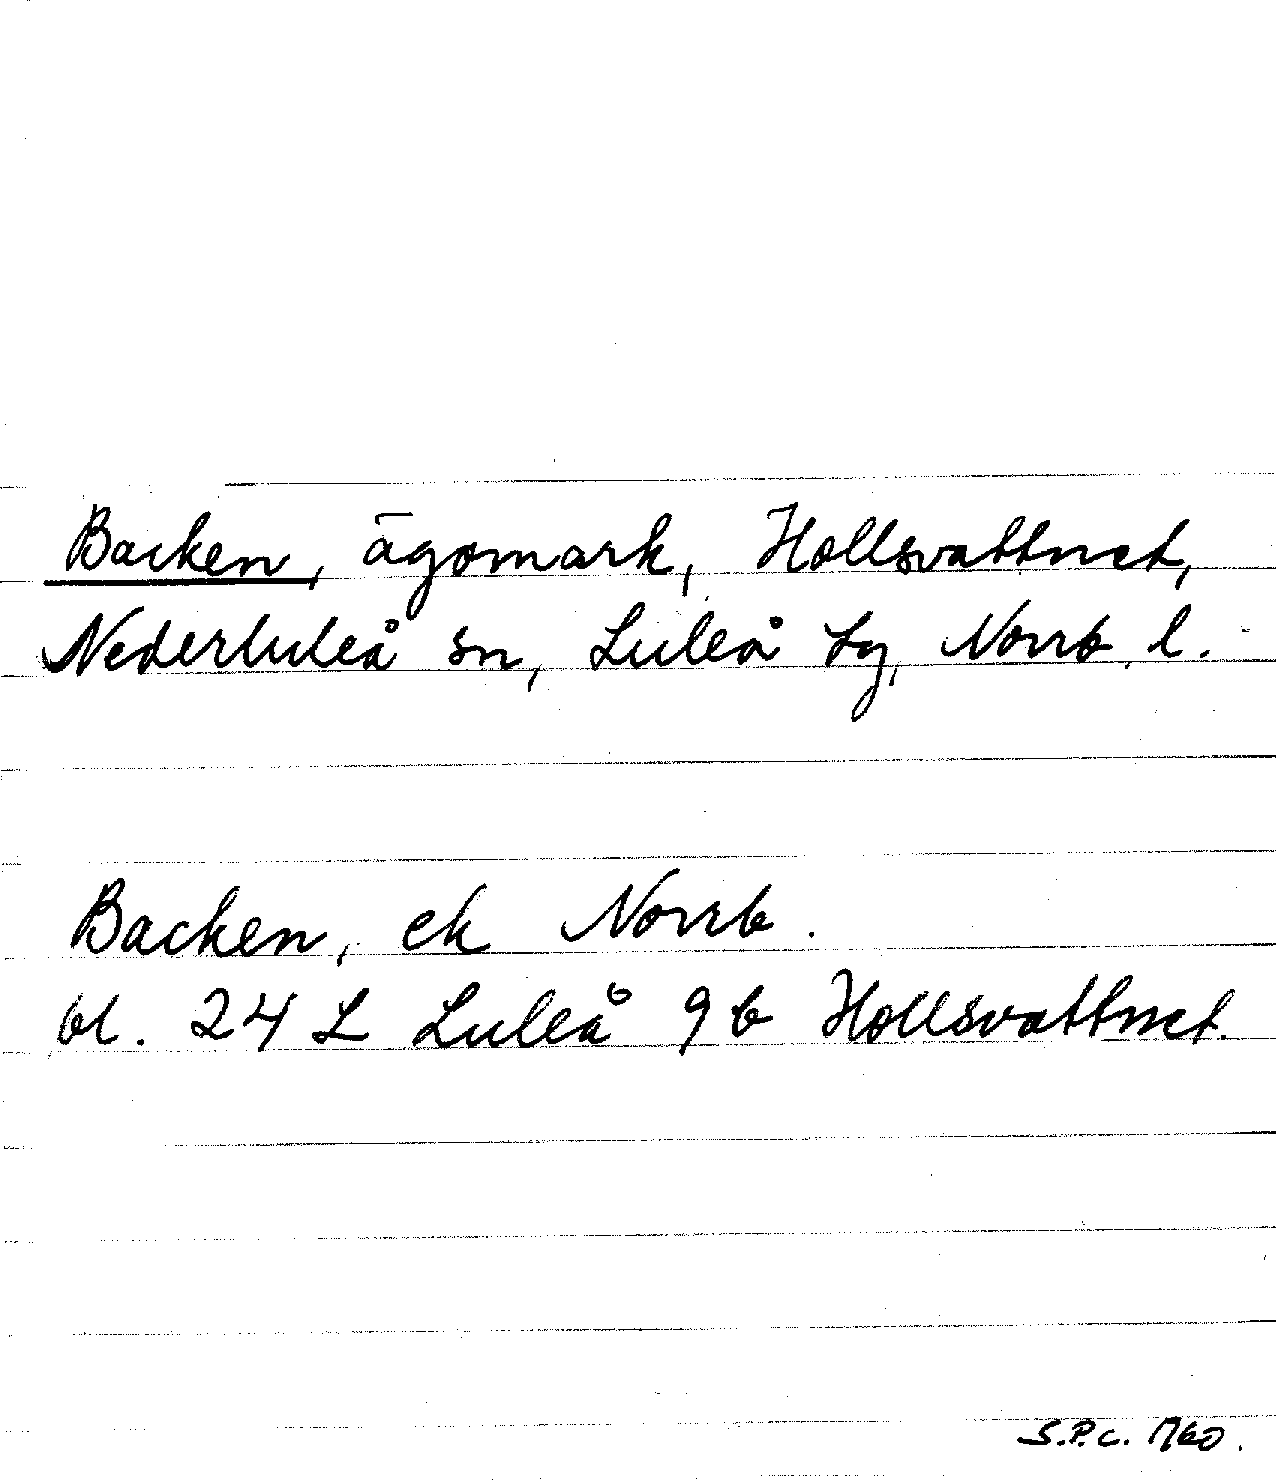 Backen, ägomark, Hollsvattnet,
Nederluleå sn, Luleå tg, Norrb. l.
Backen, ek Norrb.
bl. 24 L Luleå 9b Hollsvattnet.
S.P.C. 1760.